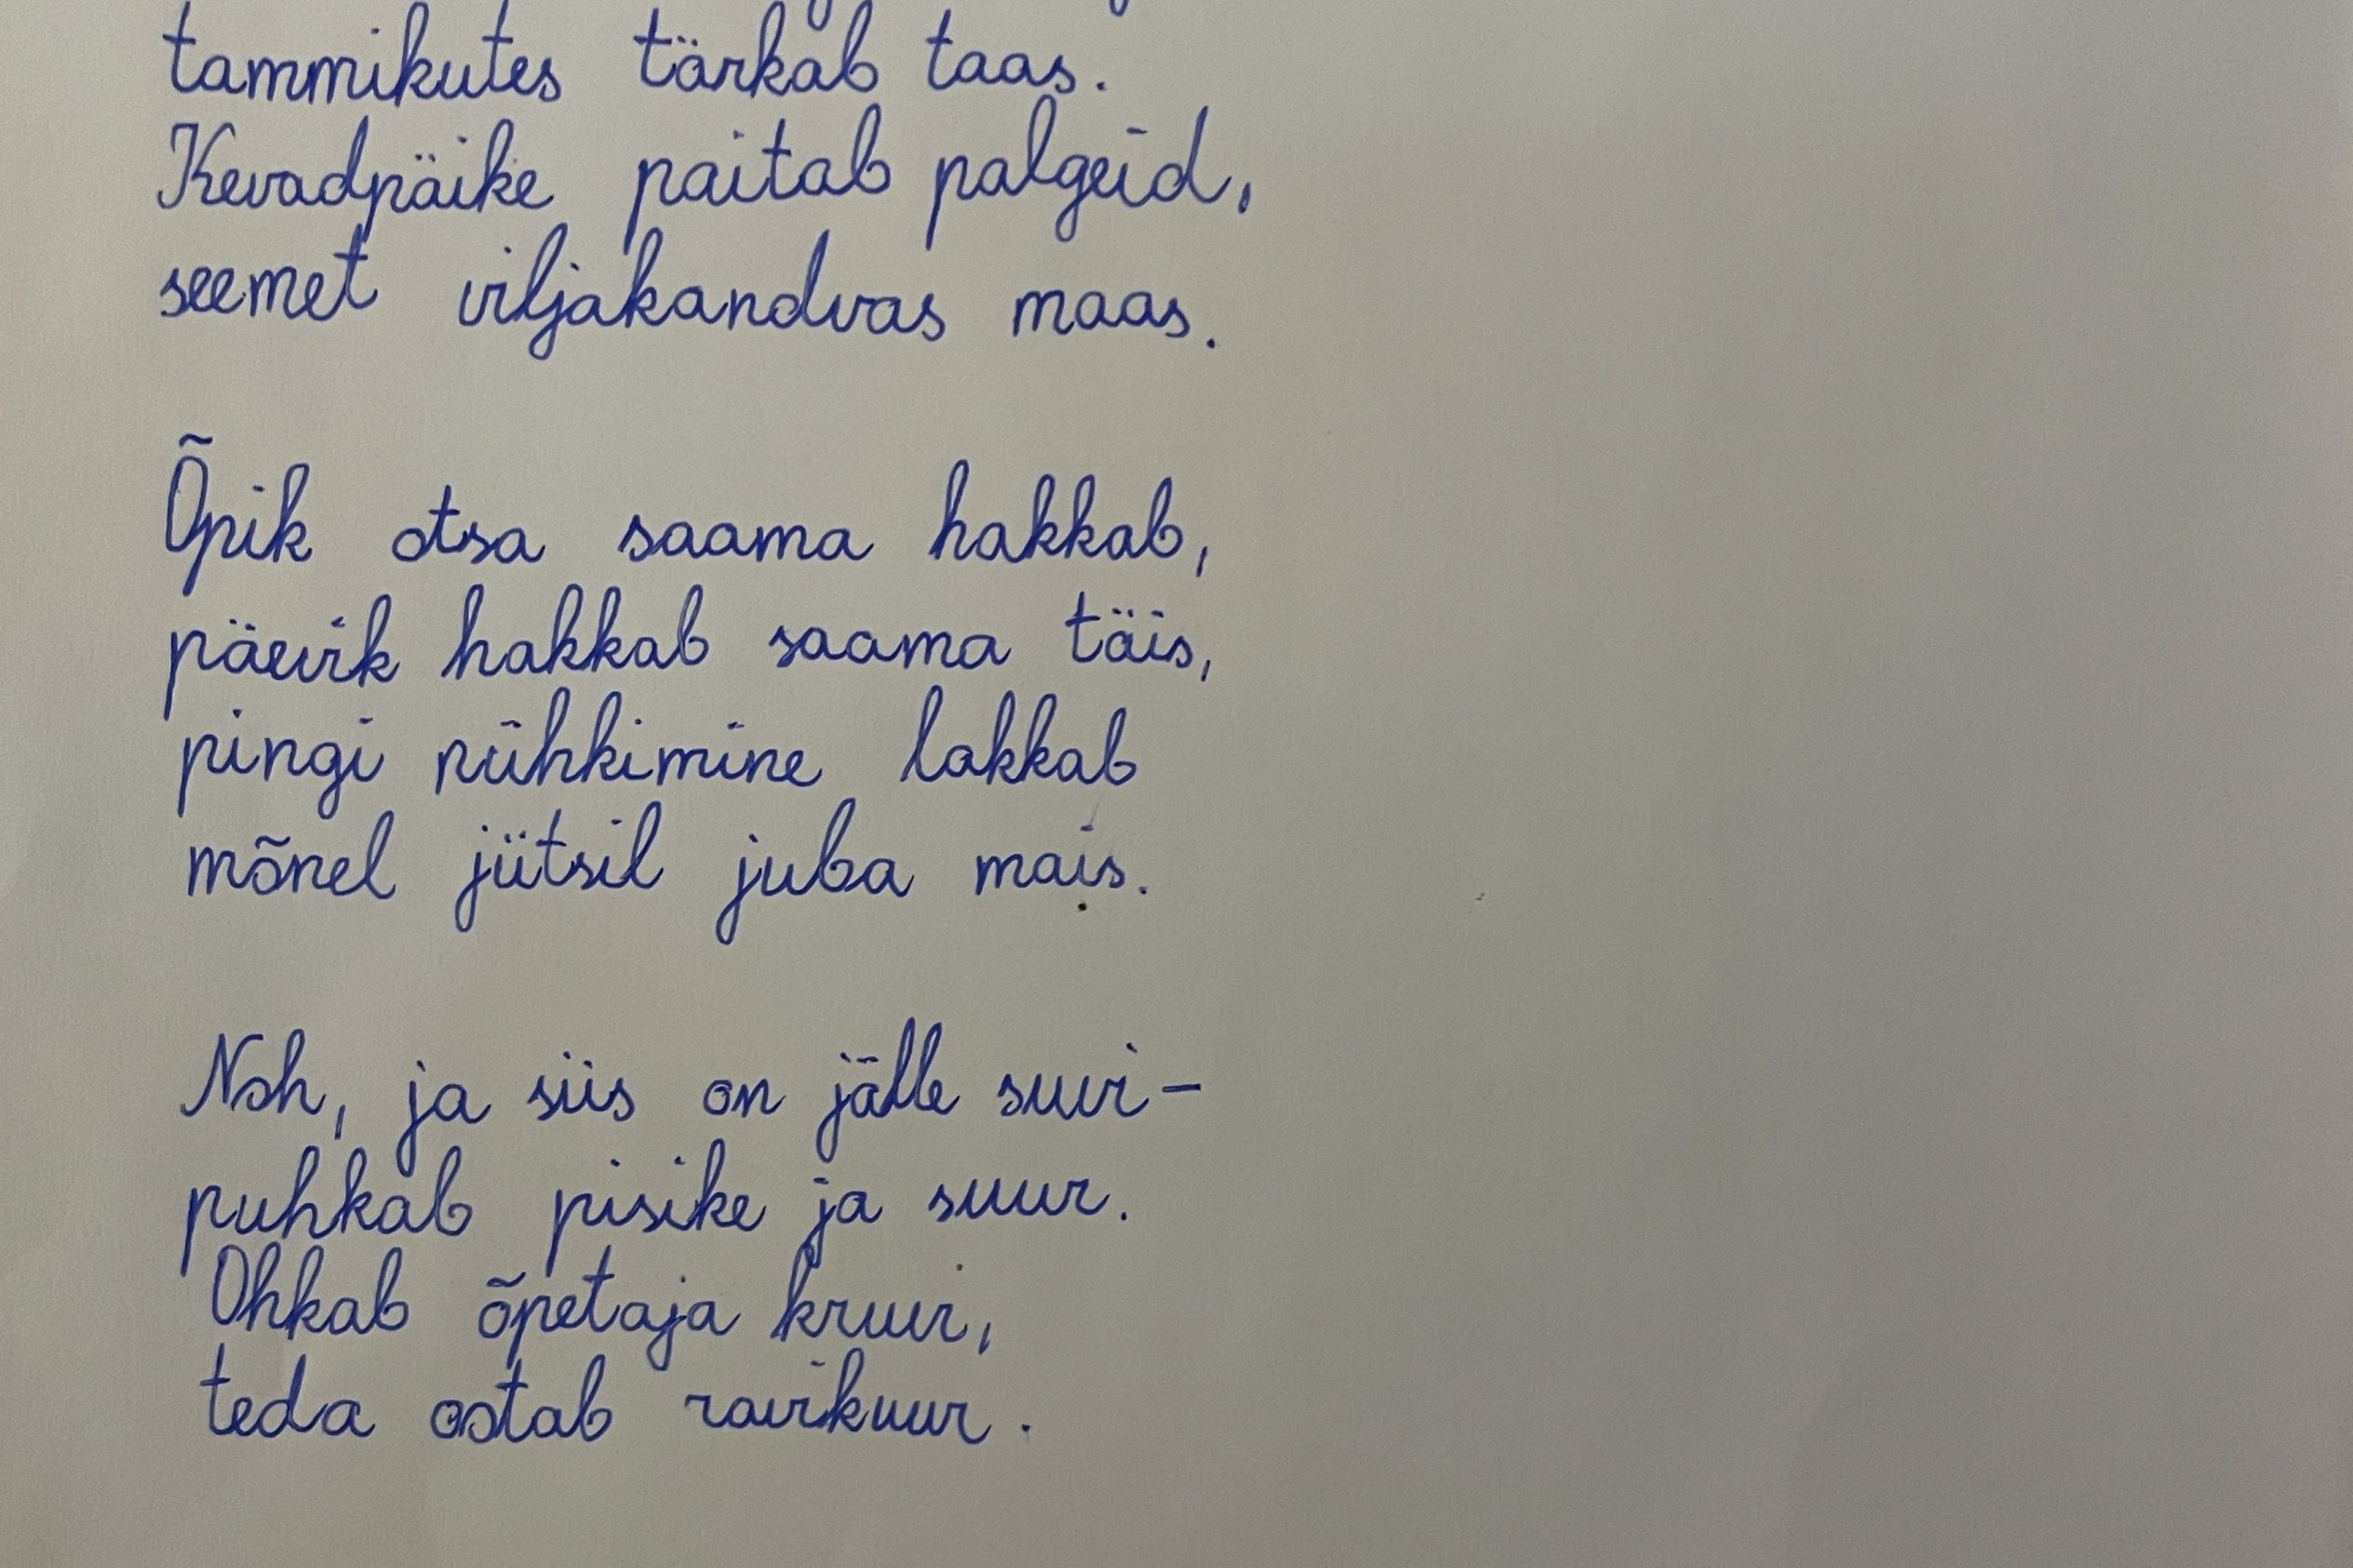 tammikutes tärkab taas.
Kevadpäike paitab palgeid,
seemet viljakandvas maas.
Õpik otsa saama hakkab,
päevik hakkab saama täis,
pingi nühkimine lakkab
mõnel jütsil juba mais.
Noh, ja siis on jälle suvi-
puhkab pisike ja suur.
Ohkab õpetaja kruvi,
teda ootab ravikuur.